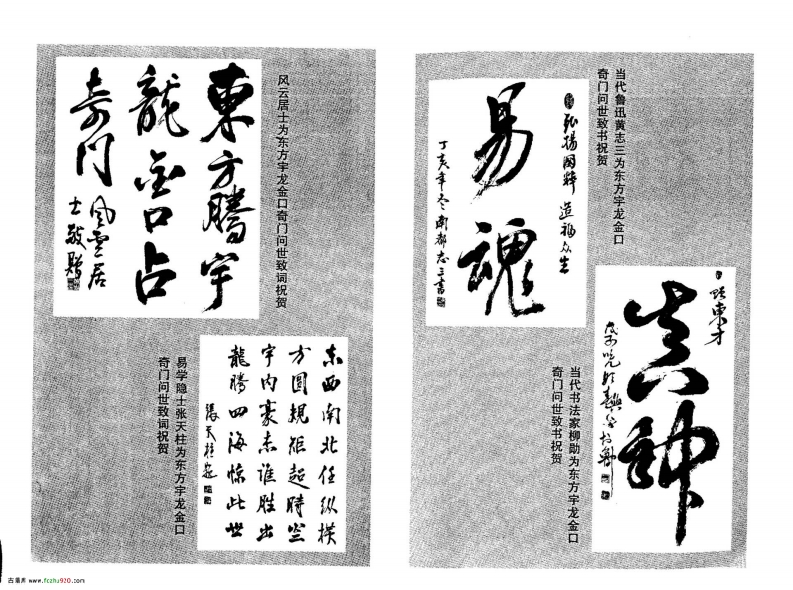 东方腾宇
龍金口占
奇门
风雲居
士敬贈
风云居士为东方宇龙金口奇门问世致词祝贺
东西南北任纵横
方圆規矩起時
宇内豪杰谁胜出
龍腾四海惊此世
張天柱
易学隐士张天柱为东方宇龙金口
奇门问世致词祝贺
当代鲁迅黄志三为东方宇龙金口
奇门问世致书祝贺
弘揚國粹 造福众生
易魂
丁亥年冬南都志三書
東才
神
当代书法家柳勋为东方宇龙金口
奇门问世致书祝贺
www.fczhu920.com